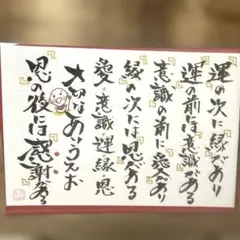 運の次に縁があり
運の前には意識がある
意識の前に愛があり
縁の次には恩がある
愛・意識・運・縁・恩
大切なあいうえお
恩の後には感謝がある